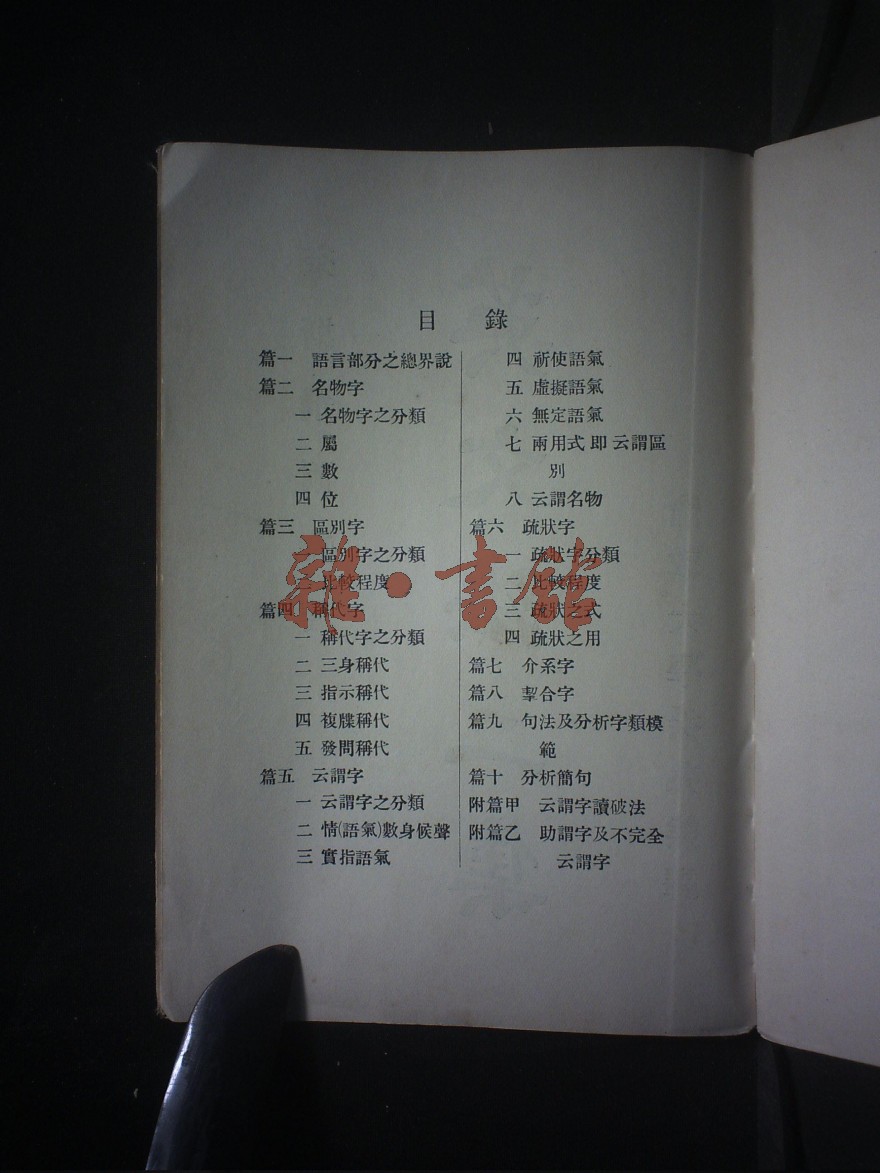 目 錄
篇一 語言部分之總界說
篇二 名物字
一 名物字之分類
二 屬
三 數
四 位
篇三 區別字
一 區別字之分類
二 比較程度
篇四 稱代字
一 稱代字之分類
二 三身稱代
三 指示稱代
四 複牒稱代
五 發問稱代
篇五 云謂字
一 云謂字之分類
二 情(語氣)數身候聲
三 實指語氣
四 祈使語氣
五 虛擬語氣
六 無定語氣
七 兩用式即云謂區
別
八 云謂名物
篇六 疏狀字
一 疏狀字分類
二 比較程度
三 疏狀之式
四 疏狀之用
篇七 介系字
篇八 挈合字
篇九 句法及分析字類模
範
篇十 分析簡句
附篇甲 云謂字讀破法
附篇乙 助謂字及不完全
云謂字
雜·書館